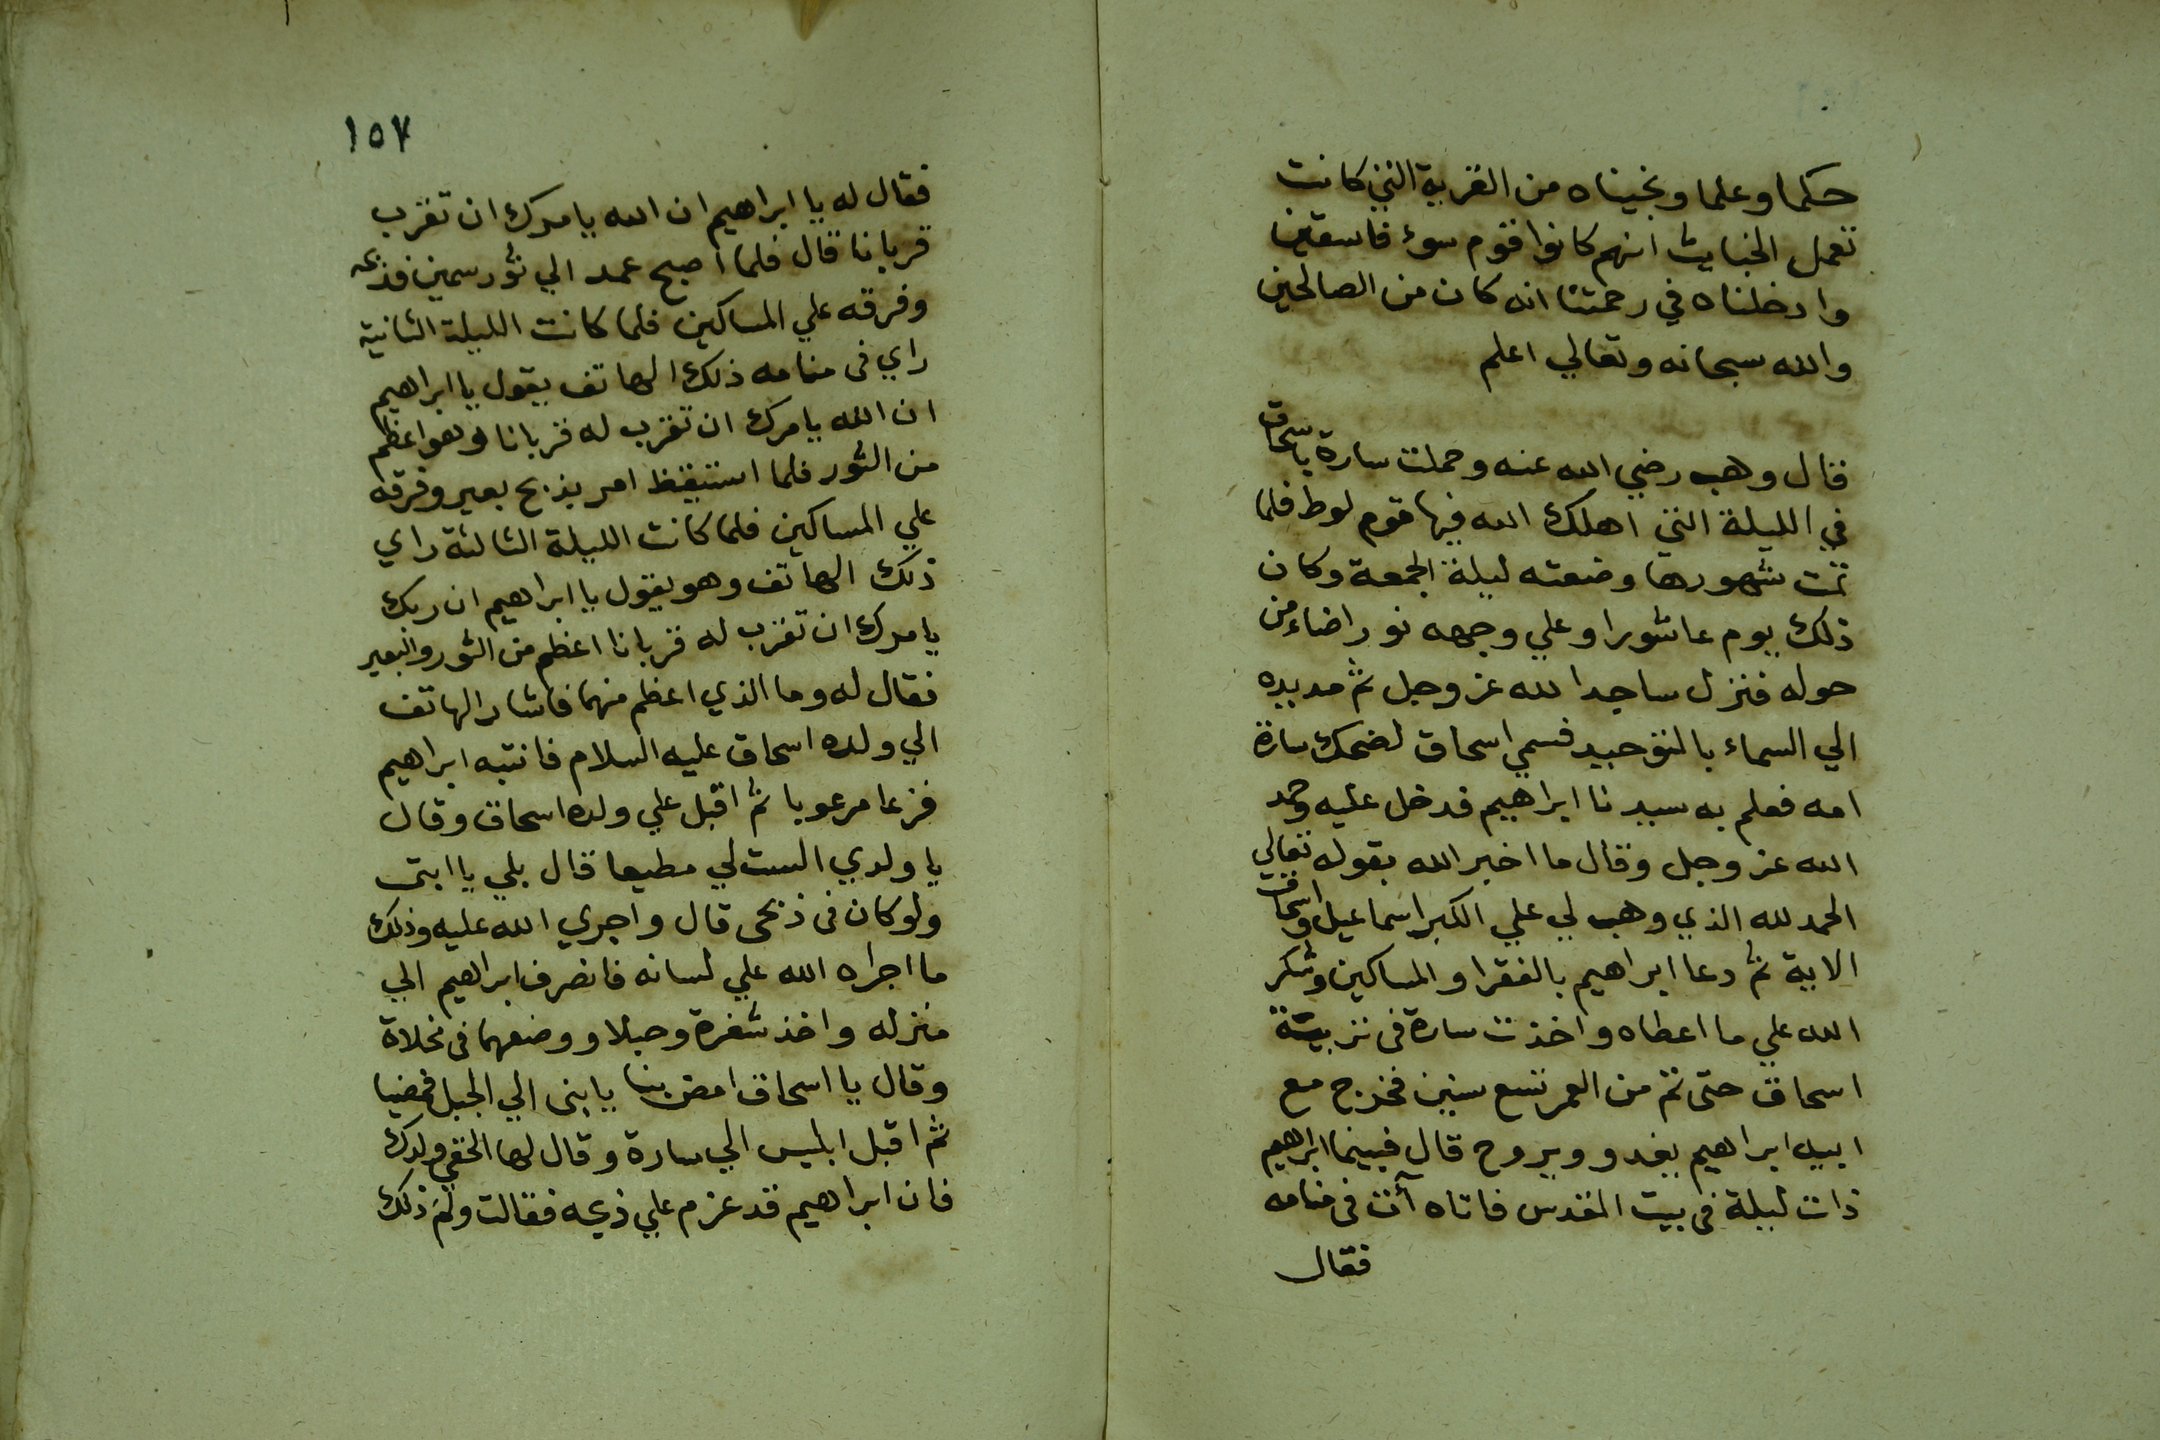 حكما وعلما ونجيناه من القرية التي كانت
تعمل الخبايث انهم كانوا قوم سوء فاسقين
وادخلناه في رحمتنا انه كان من الصالحين
والله سبحانه وتعالي اعلم
قال وهب رضي الله عنه وحملت سارة باسحاق
في الليلة التي اهلك الله فيها قوم لوط فلما
تمت شهورها وضعته ليلة الجمعة وكان
ذلك يوم عاشورا وعلي وجهه نور اضاء من
حوله فنزل ساجدا لله عز وجل ثم مد يده
الي السماء بالتوحيد فسمي اسحاق لضحك سارة
امه فعلم به سيدنا ابراهيم فدخل عليه وحمد
الله عز وجل وقال ما اخبر الله بقوله تعالي
الحمد لله الذي وهب لي علي الكبر اسماعيل واسحاق
الاية ثم دعا ابراهيم بالفقرا والمساكين وشكر
الله علي ما اعطاه واخذت سارة في تربيته
اسحاق حتى تم من العمر تسع سنين فخرج مع
ابيه ابراهيم يغدو ويروح قال فبينما ابراهيم
ذات ليلة في بيت المقدس فاتاه آت في منامه
فقال
١٥٧
فقال له يا ابراهيم ان الله يامرك ان تقرب
قربانا قال فلما اصبح عمد الي ثور سمين فذبحه
وفرقه علي المساكين فلما كانت الليلة الثانية
راي في منامه ذلك الهاتف يقول يا ابراهيم
ان الله يامرك ان تقرب له قربانا وهو اعظم
من الثور فلما استيقظ امر بذبح بعير وفرقه
علي المساكين فلما كانت الليلة الثالثة راي
ذلك الهاتف وهو يقول يا ابراهيم ان ربك
يامرك ان تقرب له قربانا اعظم من الثور والبعير
فقال له وما الذي اعظم منهما فاشار الهاتف
الي ولده اسحاق عليه السلام فانتبه ابراهيم
فزعا مرعوبا ثم اقبل علي ولده اسحاق وقال
يا ولدي الست لي مطيعا قال بلي يا ابتى
ولو كان في ذبحى قال واجري الله عليه وذلك
ما اجراه الله علي لسانه فانصرف ابراهيم الي
منزله واخذ شفرة وحبلا ووضعهما في مخلاة
وقال يا اسحاق امض بنا يا بنى الي الجبل فمضيا
ثم اقبل ابليس الي سارة وقال لها الحقي ولدك
فان ابراهيم قد عزم علي ذبحه فقالت ولم ذلك